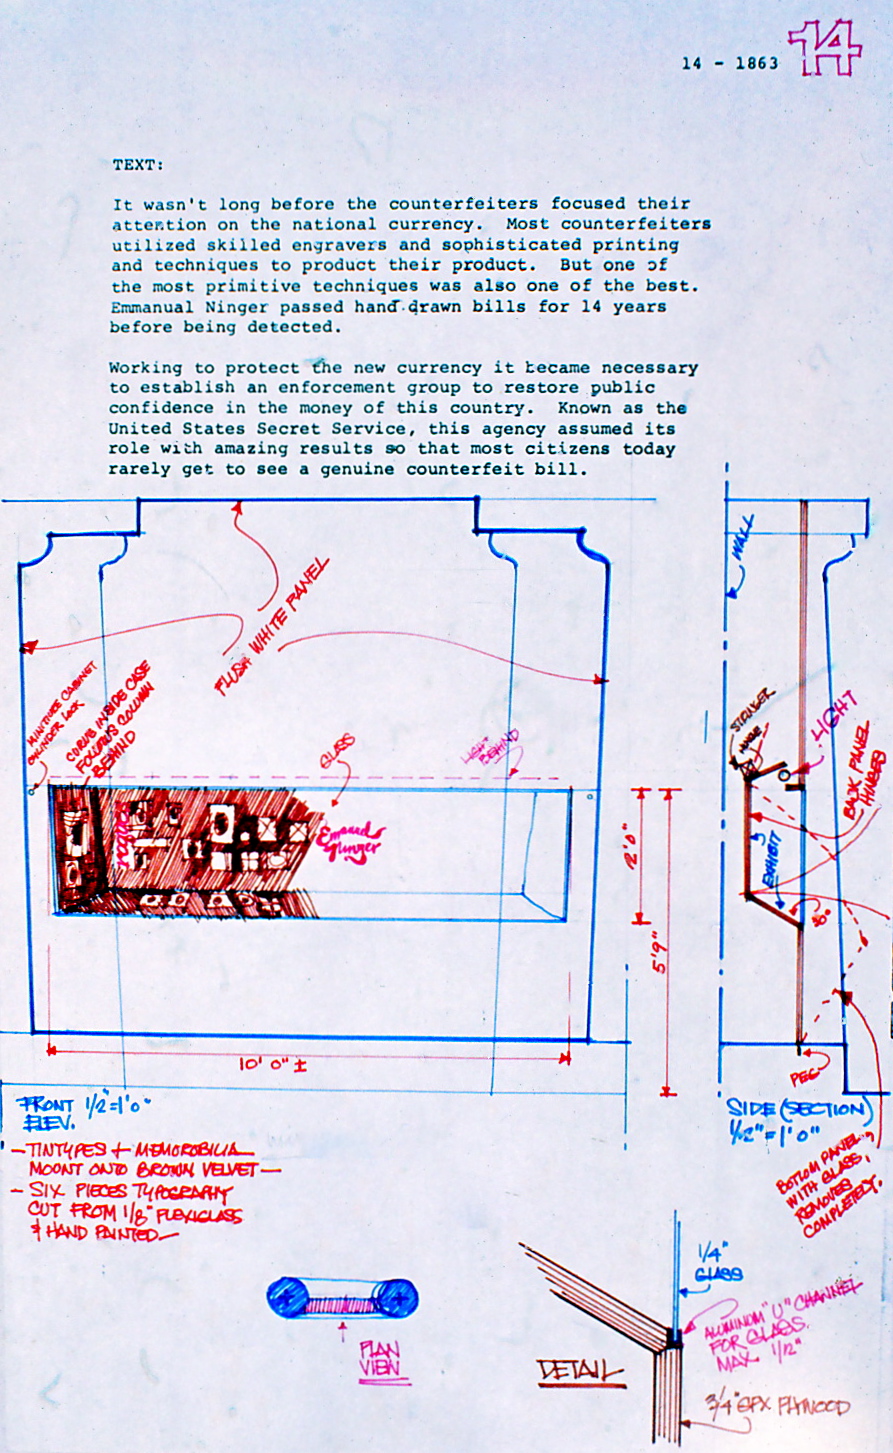 14 - 1863
14
TEXT:
It wasn't long before the counterfeiters focused their
attention on the national currency.  Most counterfeiters
utilized skilled engravers and sophisticated printing
and techniques to product their product.  But one of
the most primitive techniques was also one of the best.
Emmanual Ninger passed hand drawn bills for 14 years
before being detected.
Working to protect the new currency it became necessary
to establish an enforcement group to restore public
confidence in the money of this country.  Known as the
United States Secret Service, this agency assumed its
role with amazing results so that most citizens today
rarely get to see a genuine counterfeit bill.
FLUSH WHITE PANEL
CABINET
CYLINDER LOCK
INSIDE CASE
FOLLOWS COLUMN
BEHIND
GLASS
LIGHT
BEHIND
2'0"
5'9"
10' 0" ±
WALL
LIGHT
BACK PANEL
HINGES
EXHIBIT
PEG
FRONT 1/2"=1'0"
ELEV.
SIDE (SECTION)
1/2"=1'0"
- TINTYPES + MEMORBILIA
MOONT ONTO BROWN VELVET -
- SIX PIECES TYPOGRAPHY
CUT FROM 1/8" PLEXIGLASS
& HAND PAINTED -
BOTTOM PANEL,
WITH GLASS,
REMOVES
COMPLETELY.
PLAN
VIEW
DETAIL
1/4"
GLASS
ALUMINOM "U" CHANNEL
FOR GLASS.
MAX 1/12"
3/4" PLYWOOD